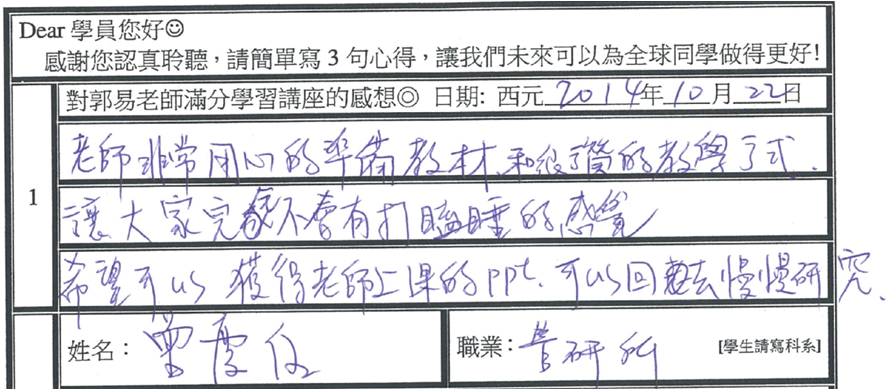 Dear 學員您好☺
感謝您認真聆聽，請簡單寫 3 句心得，讓我們未來可以為全球同學做得更好!
1
對郭易老師滿分學習講座的感想◎ 日期: 西元 2014 年 10 月 22 日
老師非常用心的準備教材、和很了的教學方式.
讓大家完不會有打瞌睡的感覺
希望可以獲得老師上課的ppt、可以回去慢慢研究.
姓名： 曾
職業： 管研所 [學生請寫科系]